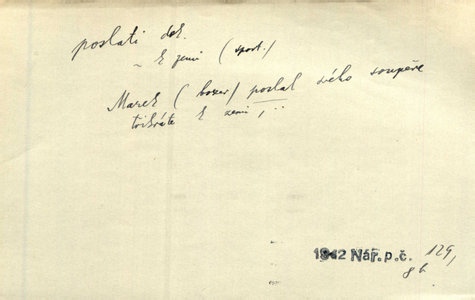 poslati dok.
~ k zemi (sport.)
Marek (boxer) poslal svého soupeře
třikráte k zemi,..
1942 Nář. p. č. 129,
8 b